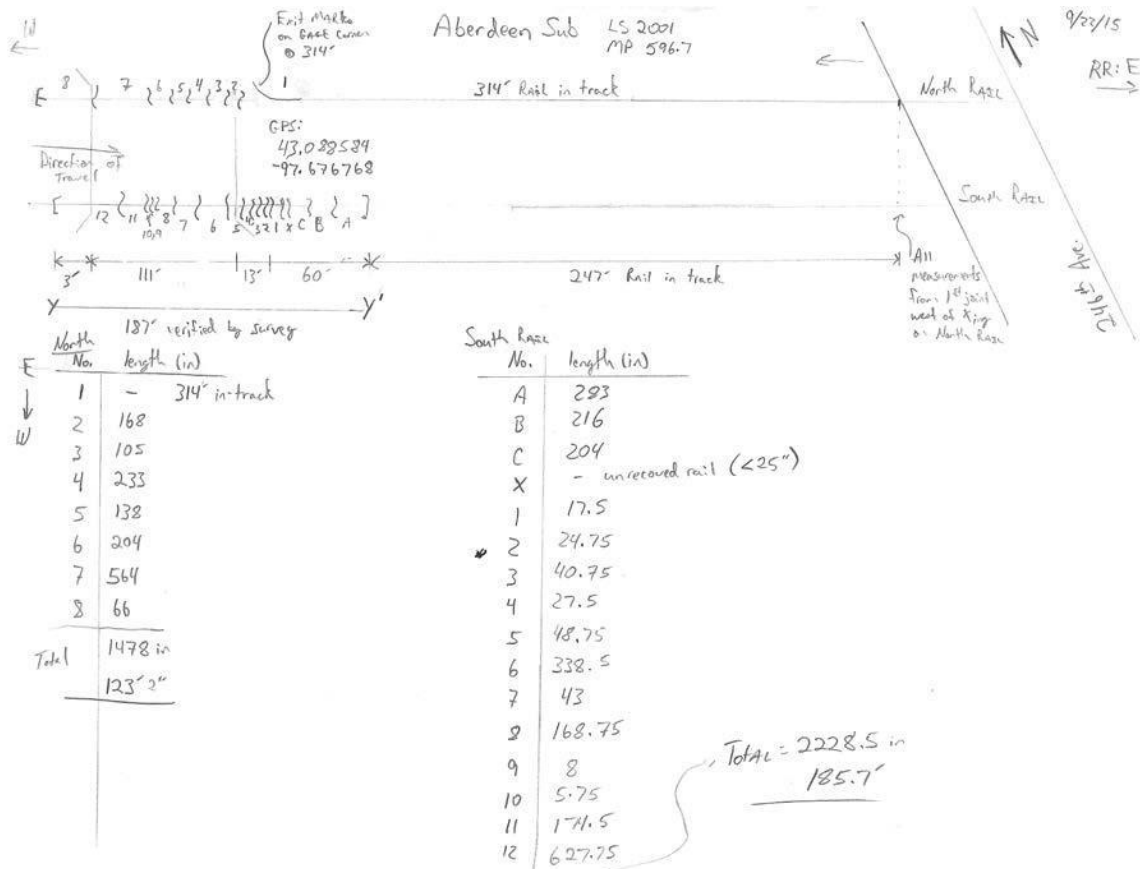 W
Exit Marks
on East Corner
@ 314'
Aberdeen Sub LS 2001
MP 596.7
N
9/23/15
RR: E
E 8 7 6 5 4 3 2 1
314' Rail in track
North Rail
GPS:
43.088584
-97.676768
Direction of
Travel
South Rail
12 11 9 8 7 6 5 4 3 2 1 X C B A
10,9
3' 111' 13' 60'
247' Rail in track
All
measurements
from 1st joint
west of Xing
on North Rail
246th Ave.
Y Y'
187' verified by survey
North
No. length (in)
E
W
1 - 314' in-track
2 168
3 105
4 233
5 138
6 204
7 564
8 66
Total 1478 in
123' 2"
South Rail
No. length (in)
A 283
B 216
C 204
X - unrecoved rail (<25")
1 17.5
2 24.75
3 40.75
4 27.5
5 48.75
6 338.5
7 43
8 168.75
9 8
10 5.75
11 174.5
12 627.75
Total = 2228.5 in
185.7'